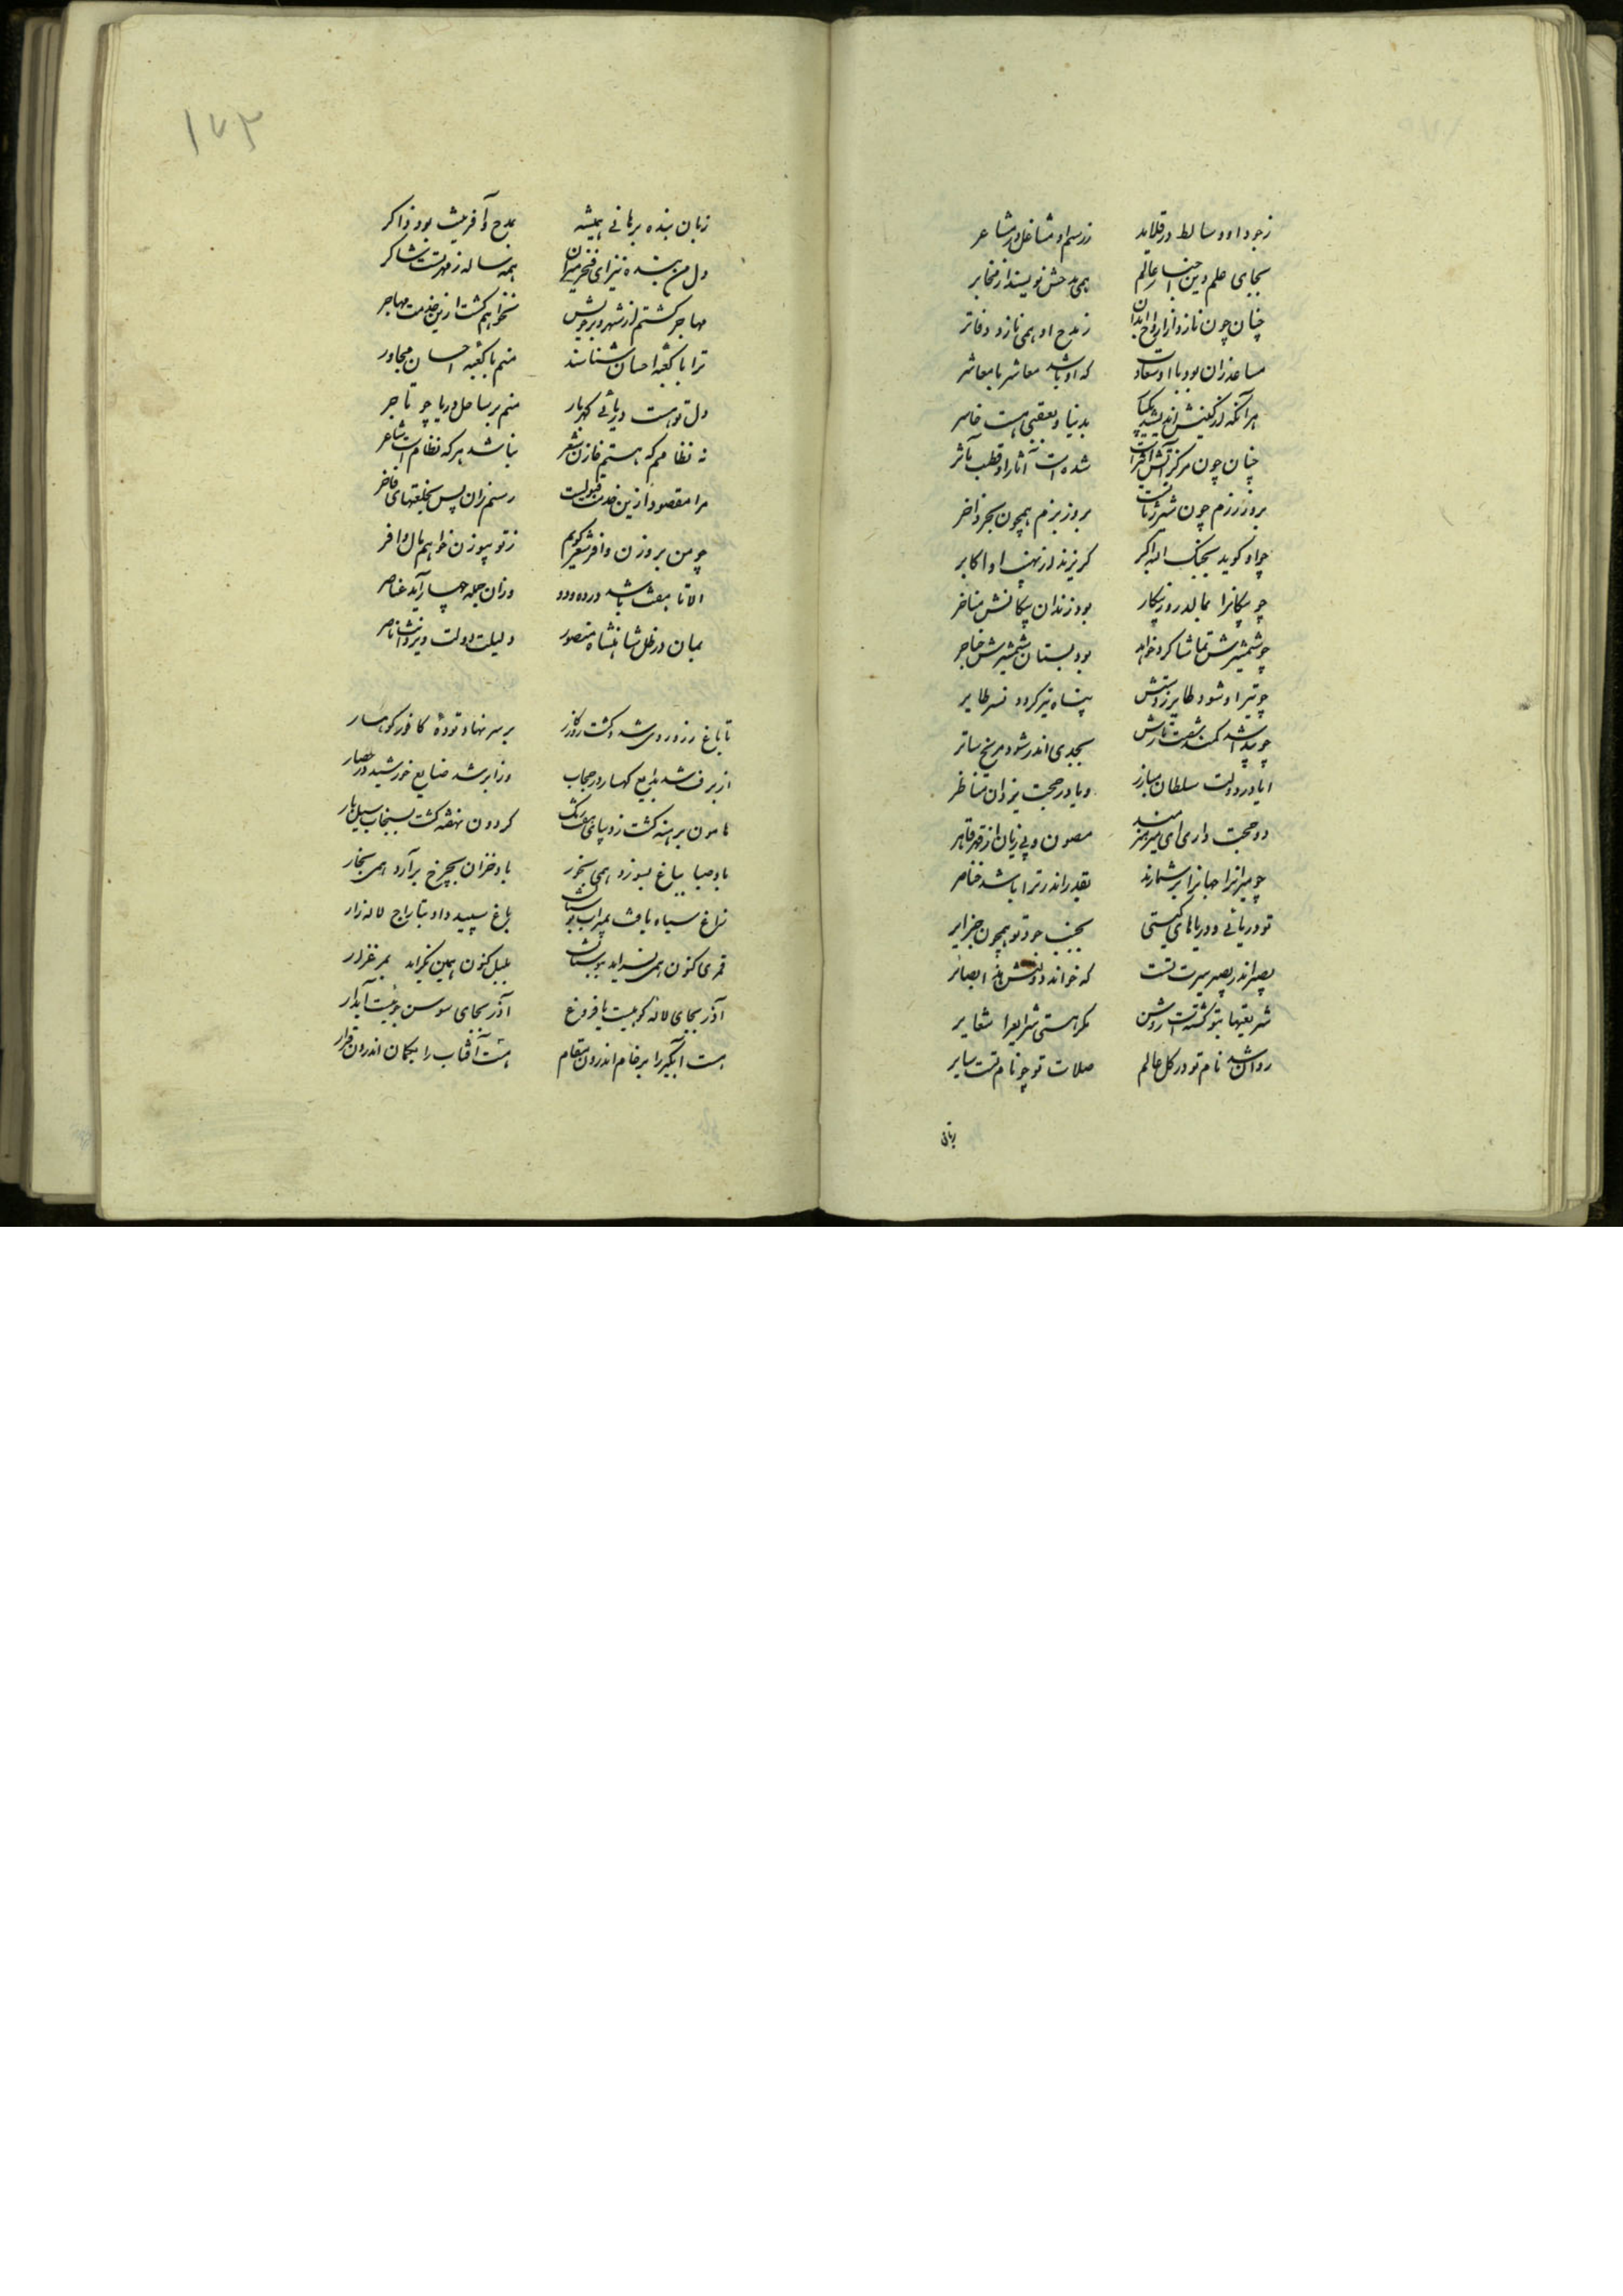 زجود او وسائط در قلاید زرسم او مشاغل در مشاعر
بجای علم و دین اخبار عالم همی مدحش نویسند از مخابر
چنان چون نازد از ارواح ابدان ز مدح او همی نازد دفاتر
مساعد زان بود با او سعادت که او باشد معاشر با معاشر
هر آنکه از کینش اندیشد بدنیا و بعقبی هست خاسر
چنان چون مرکز آتش شده است آثار او قطب مآثر
بروز رزم چون شیر ژیانست بروز بزم همچون بحر زاخر
چو او گوید بجنگ الله اکبر گریزند از نهیب او اکابر
چو پیکانرا بمالد روز پیکار بود زندان پیکانش مناخر
چو شمشیرش تماشا کرد خواهد بود بستان شمشیرش خناجر
چو تیر او شود طایر ز دستش پناه تیر گردد نسر طایر
چو پیدا شد کمند شصت تارش بجدی اندر شود مریخ ساتر
ایا در دولت سلطان مبارز و یا در حجت یزدان مناظر
دو حجت داری ای میر هنرمند مصون و بی زیان از قهر قاهر
چو میرانرا جهانرا برشمارند بقدر اندر ترا باشد خناصر
تو دریائی و دریاهای گیتی بجنب جود تو همچون جزایر
بصیر اندر بصیر سیرت تست که خواند دولتش هذا بصائر
شریعتها بتو گشتست روشن مگر هستی شرایع را شعایر
روان شد نام تو در کل عالم صلات تو چو نام تست سایر
زبان
۱۷۳
زبان بنده برهانی همیشه بمدح و آفرینت بود ذاکر
دل من بنده نیز ای فخر میران همه ساله ز مهر تست شاکر
مهاجر گشتم از شهر و بر خویش نخواهم گشت ازین خدمت مهاجر
ترا با کعبه احسان شناسند منم با کعبه احسان مجاور
دل تو هست دریائی گهربار منم بر ساحل دریا چو تاجر
نه نظامم که هستم خازن شعر نباشد هر که نظام است شاعر
مرا مقصود ازین خدمت قبولست رسم زان پس بخلعتهای فاخر
چو من بر وزن وافر شعر گویم ز تو بیوزن خواهم مال وافر
الا تا هفت باشد در ده و دو وزان جمله چهار آید عناصر
بمان در ظل شاهنشاه منصور دلیلت دولت و یزدانت ناصر
تا باغ زرد روی شد از گشت روزگار بر سر نهاد توده کافور کوهسار
از برف شد بدایع کهسار در حجاب وز ابر شد صنایع خورشید در حصار
هامون برهنه گشت ز دیبای هفت رنگ گردون نهفته گشت بسنجاب سیل بار
باد صبا بباغ بسوزد همی بخور باد خزان بچرخ برآرد همی بخار
زاغ سیاه یافت بمیراث بوستان باغ سپید داد بتاراج لاله زار
قمری کنون همی نسراید ببوستان بلبل کنون همی نگراید بمرغزار
آذر بجای لاله کوهیست با فروغ آذر بجای سوسن جوئیست آبدار
هست آبگیر را بر خام اندرون مقام هست آفتاب را بکمان اندرون قرار